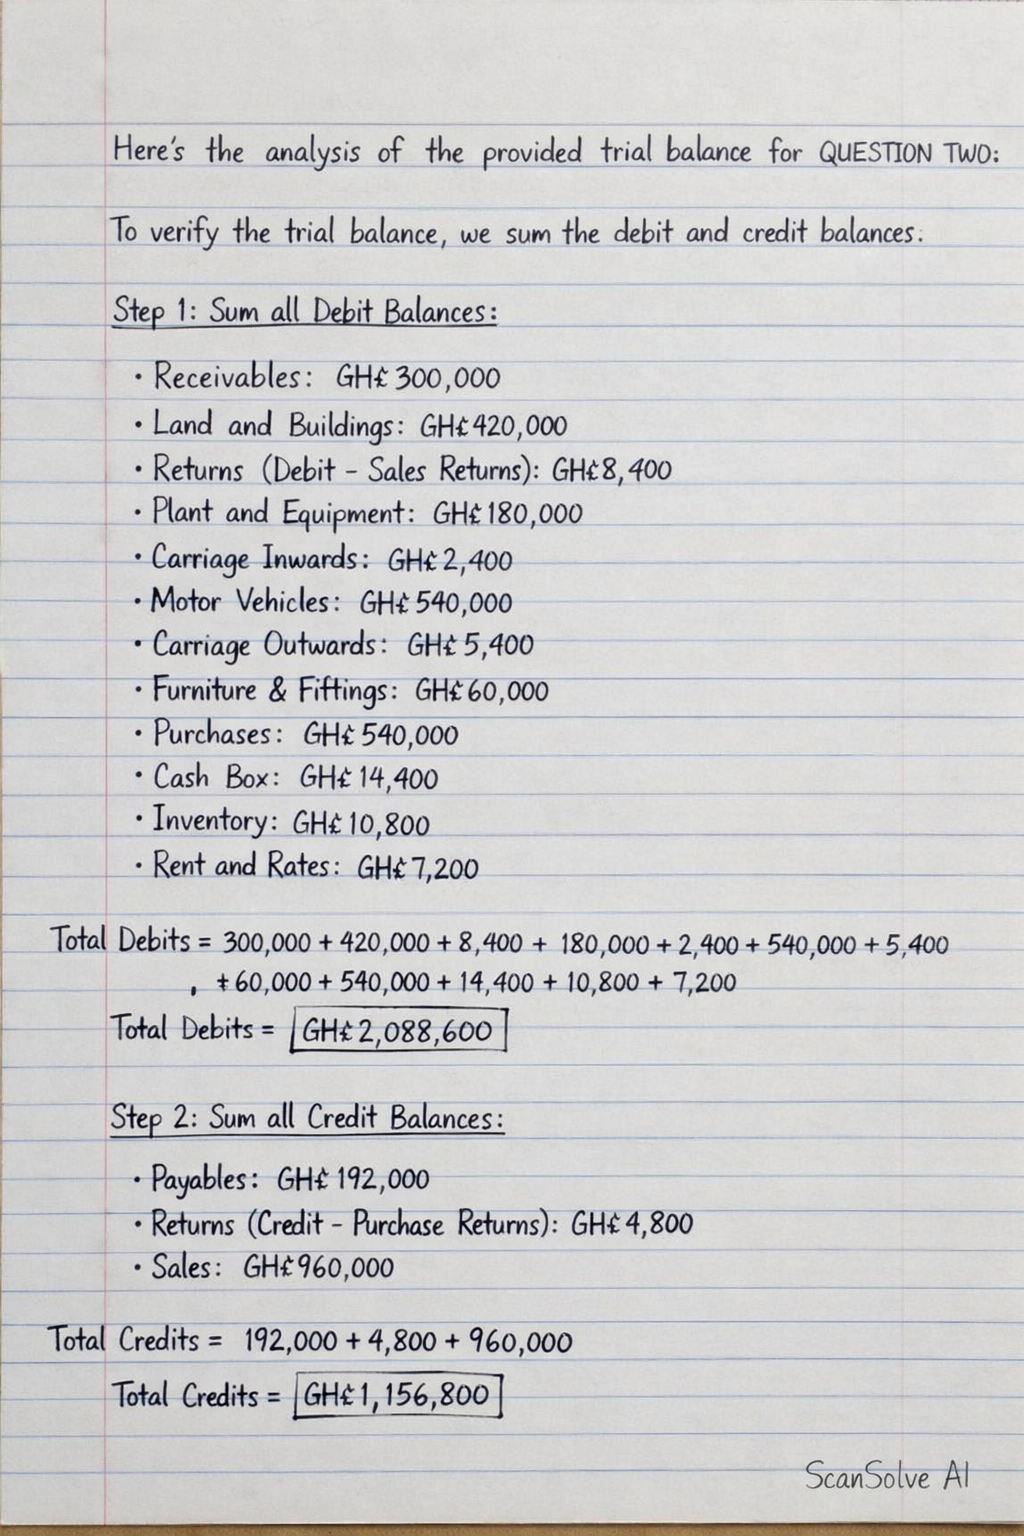 Here's the analysis of the provided trial balance for QUESTION TWO:
To verify the trial balance, we sum the debit and credit balances.
Step 1: Sum all Debit Balances:
• Receivables: GH₤ 300,000
• Land and Buildings: GH₤420,000
• Returns (Debit - Sales Returns): GH₤8,400
• Plant and Equipment: GH₤180,000
• Carriage Inwards: GH₤2,400
• Motor Vehicles: GH₤540,000
• Carriage Outwards: GH₤5,400
• Furniture & Fiftings: GH₤60,000
• Purchases: GH₤540,000
• Cash Box: GH₤14,400
• Inventory: GH₤10,800
• Rent and Rates: GH₤7,200
Total Debits = 300,000 + 420,000 + 8,400 + 180,000 + 2,400 + 540,000 + 5,400
, +60,000 + 540,000 + 14,400 + 10,800 + 7,200
Total Debits = GH₤2,088,600
Step 2: Sum all Credit Balances:
• Payables: GH₤192,000
• Returns (Credit - Purchase Returns): GH₤4,800
• Sales: GH₤960,000
Total Credits = 192,000 + 4,800 + 960,000
Total Credits = GH₤1,156,800
ScanSolve AI